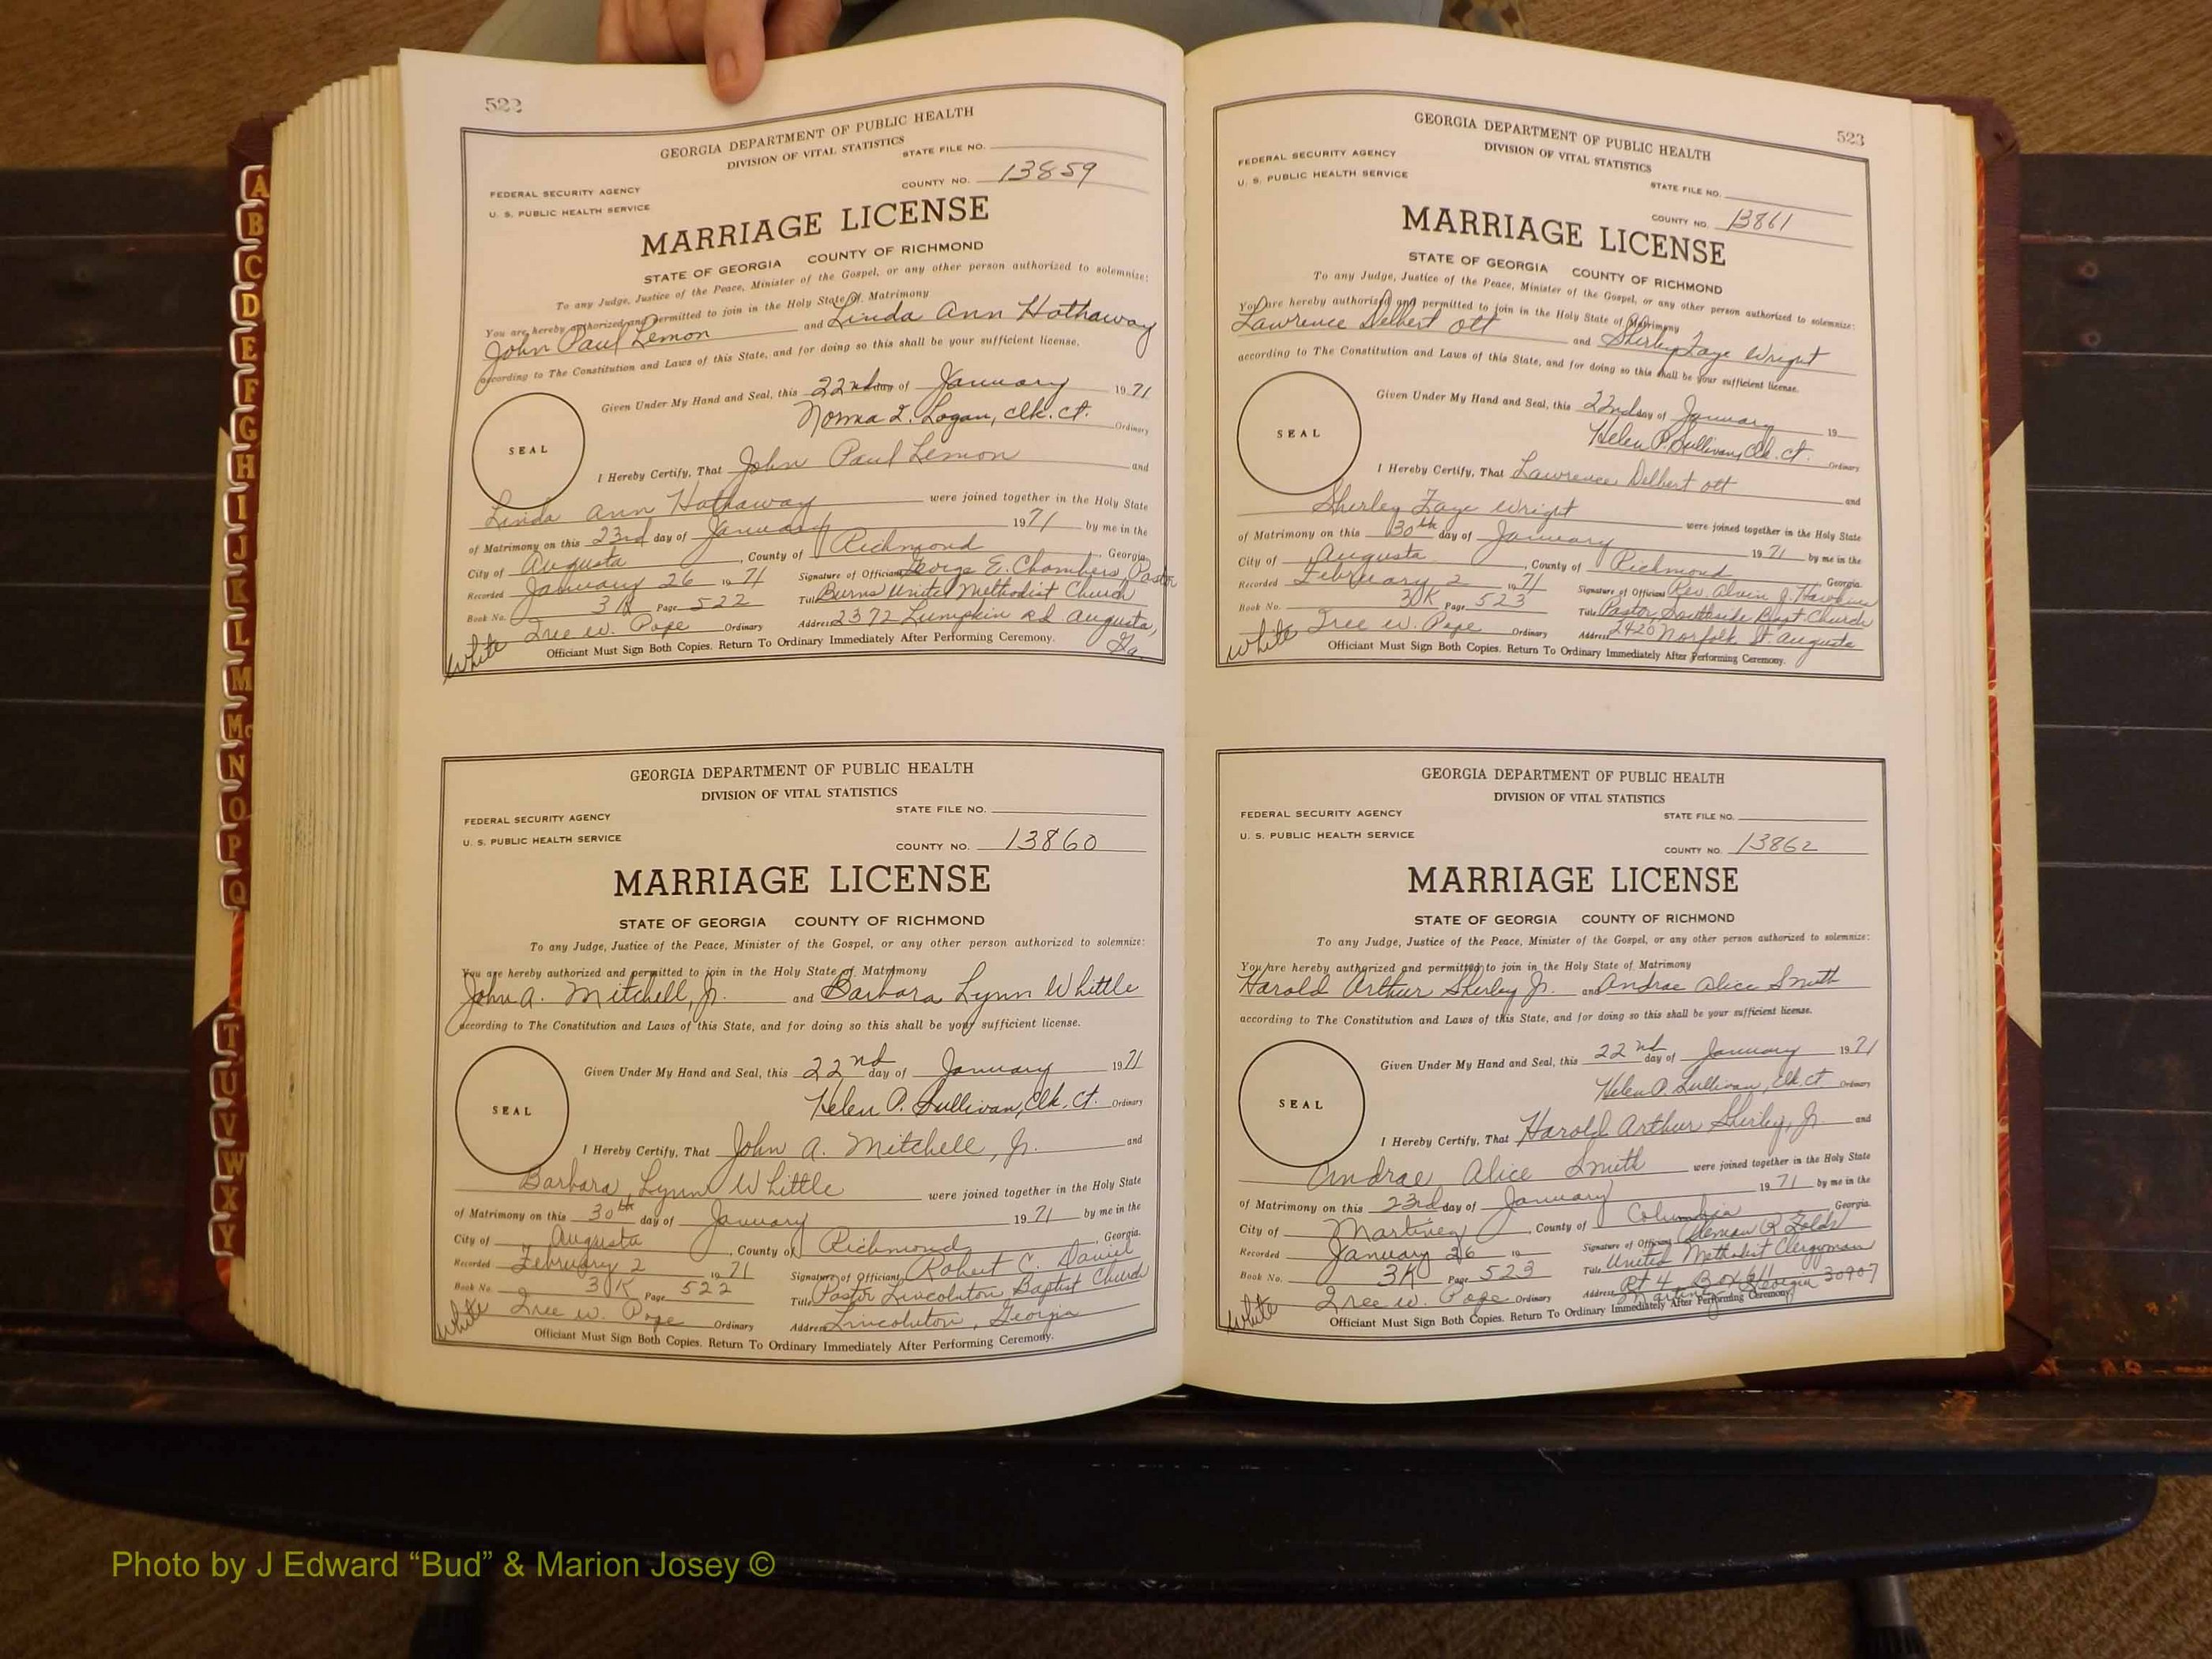 522
GEORGIA DEPARTMENT OF PUBLIC HEALTH
DIVISION OF VITAL STATISTICS
STATE FILE NO.
FEDERAL SECURITY AGENCY
COUNTY NO. 13859
U. S. PUBLIC HEALTH SERVICE
MARRIAGE LICENSE
STATE OF GEORGIA COUNTY OF RICHMOND
To any Judge, Justice of the Peace, Minister of the Gospel, or any other person authorized to solemnize:
You are hereby authorized and permitted to join in the Holy State of Matrimony
John Paul Lemon and Linda Ann Hathaway
according to The Constitution and Laws of this State, and for doing so this shall be your sufficient license.
Given Under My Hand and Seal, this 22nd day of January 1971
Norma L. Logan, Clk. Ct. Ordinary
SEAL
I Hereby Certify, That John Paul Lemon and
Linda Ann Hathaway were joined together in the Holy State
of Matrimony on this 23rd day of January 1971 by me in the
City of Augusta, County of Richmond, Georgia
Recorded January 26 1971 Signature of Officiant George E. Chambers, Pastor
Book No. 3K Page 522 Title Burns United Methodist Church
Tree W. Pope Ordinary Address 2372 Lumpkin Rd Augusta, Ga.
White
Officiant Must Sign Both Copies. Return To Ordinary Immediately After Performing Ceremony.
GEORGIA DEPARTMENT OF PUBLIC HEALTH
DIVISION OF VITAL STATISTICS
STATE FILE NO.
FEDERAL SECURITY AGENCY
U. S. PUBLIC HEALTH SERVICE
COUNTY NO. 13860
MARRIAGE LICENSE
STATE OF GEORGIA COUNTY OF RICHMOND
To any Judge, Justice of the Peace, Minister of the Gospel, or any other person authorized to solemnize:
You are hereby authorized and permitted to join in the Holy State of Matrimony
John A. Mitchell, Jr. and Barbara Lynn Whittle
according to The Constitution and Laws of this State, and for doing so this shall be your sufficient license.
Given Under My Hand and Seal, this 22nd day of January 1971
Helen P. Sullivan, Clk. Ct. Ordinary
SEAL
I Hereby Certify, That John A. Mitchell, Jr. and
Barbara Lynn Whittle were joined together in the Holy State
of Matrimony on this 30th day of January 1971 by me in the
City of Augusta, County of Richmond, Georgia.
Recorded February 2 1971 Signature of Officiant Robert C. Daniel
Book No. 3K Page 522 Title Pastor Lincolnton Baptist Church
Tree W. Pope Ordinary Address Lincolnton, Georgia
White
Officiant Must Sign Both Copies. Return To Ordinary Immediately After Performing Ceremony.
523
GEORGIA DEPARTMENT OF PUBLIC HEALTH
DIVISION OF VITAL STATISTICS
FEDERAL SECURITY AGENCY
U. S. PUBLIC HEALTH SERVICE
STATE FILE NO.
COUNTY NO. 13861
MARRIAGE LICENSE
STATE OF GEORGIA COUNTY OF RICHMOND
To any Judge, Justice of the Peace, Minister of the Gospel, or any other person authorized to solemnize:
You are hereby authorized and permitted to join in the Holy State of Matrimony
Lawrence Delbert Ott and Shirley Faye Wright
according to The Constitution and Laws of this State, and for doing so this shall be your sufficient license.
Given Under My Hand and Seal, this 22nd day of January 19
Helen P. Sullivan, Clk. Ct. Ordinary
SEAL
I Hereby Certify, That Lawrence Delbert Ott and
Shirley Faye Wright were joined together in the Holy State
of Matrimony on this 30th day of January 1971 by me in the
City of Augusta, County of Richmond, Georgia.
Recorded February 2 1971 Signature of Officiant Rev. Alvin J. Hawkins
Book No. 3K Page 523 Title Pastor, Southside Bapt Church
Tree W. Pope Ordinary Address 2420 Norfolk St Augusta
White
Officiant Must Sign Both Copies. Return To Ordinary Immediately After Performing Ceremony.
GEORGIA DEPARTMENT OF PUBLIC HEALTH
DIVISION OF VITAL STATISTICS
FEDERAL SECURITY AGENCY
STATE FILE NO.
U. S. PUBLIC HEALTH SERVICE
COUNTY NO. 13862
MARRIAGE LICENSE
STATE OF GEORGIA COUNTY OF RICHMOND
To any Judge, Justice of the Peace, Minister of the Gospel, or any other person authorized to solemnize:
You are hereby authorized and permitted to join in the Holy State of Matrimony
Harold Arthur Shirley Jr. and Andrae Alice Smith
according to The Constitution and Laws of this State, and for doing so this shall be your sufficient license.
Given Under My Hand and Seal, this 22nd day of January 1971
Helen P. Sullivan, Clk. Ct Ordinary
SEAL
I Hereby Certify, That Harold Arthur Shirley, Jr. and
Andrae Alice Smith were joined together in the Holy State
of Matrimony on this 23rd day of January 1971 by me in the
City of Martinez, County of Columbia Georgia.
Recorded January 26 19 Signature of Officiant R.
Book No. 3K Page 523 Title United Methodist Clergyman
Tree W. Pope Ordinary Address Rt 4 Box Martinez Georgia 30907
White
Officiant Must Sign Both Copies. Return To Ordinary Immediately After Performing Ceremony.
A
B
C
D
E
F
G
H
I
J
K
L
M
Mc
N
O
P
Q
T
U
V
W
X
Y
Photo by J Edward “Bud” & Marion Josey ©